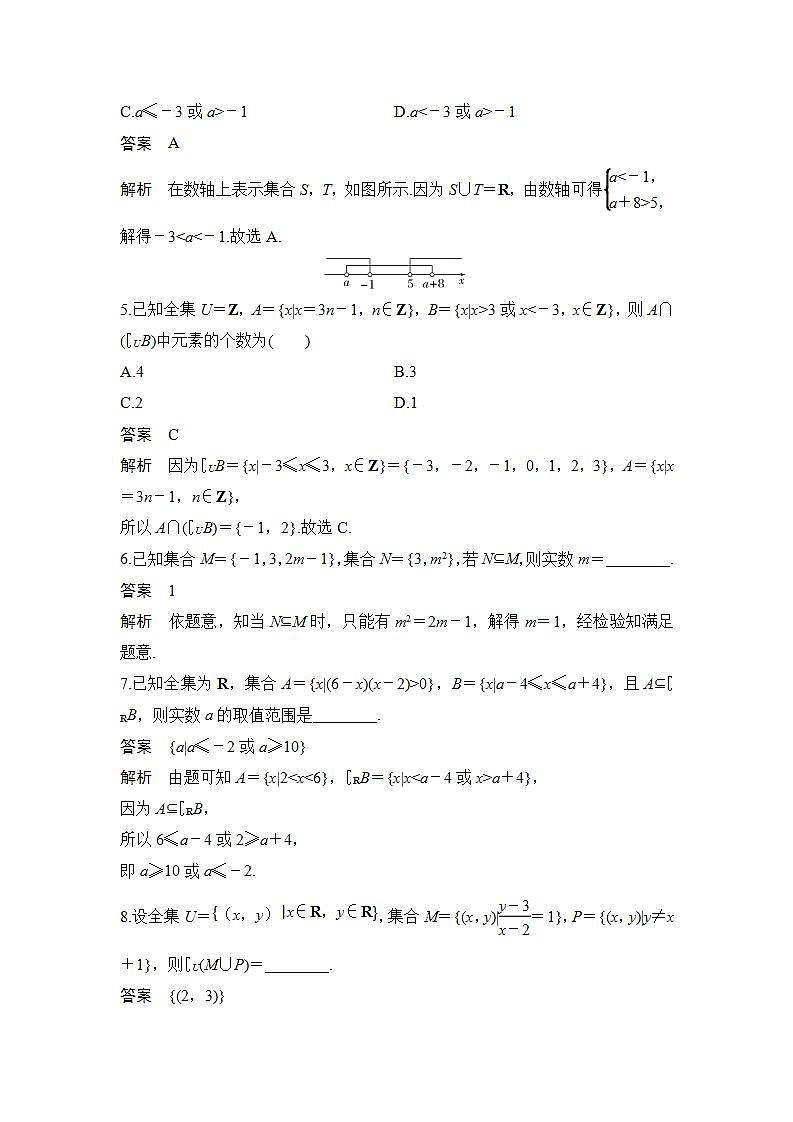 C.a≤－3或a>－1　　D.a<－3或a>－1
答案　A
解析　在数轴上表示集合S，T，如图所示.因为S∪T＝R，由数轴可得{a<－1，
a＋8>5，
解得－3<a<－1.故选A.
a －1 5 a＋8 x
5.已知全集U＝Z，A＝{x|x＝3n－1，n∈Z}，B＝{x|x>3或x<－3，x∈Z}，则A∩
(∁UB)中元素的个数为(　　)
A.4　　B.3
C.2　　D.1
答案　C
解析　因为∁UB＝{x|－3≤x≤3，x∈Z}＝{－3，－2，－1，0，1，2，3}，A＝{x|x
＝3n－1，n∈Z}，
所以A∩(∁UB)＝{－1，2}.故选C.
6.已知集合M＝{－1,3,2m－1},集合N＝{3,m²},若N⊆M,则实数m＝________.
答案　1
解析　依题意，知当N⊆M时，只能有m²＝2m－1，解得m＝1，经检验知满足
题意.
7.已知全集为R，集合A＝{x|(6－x)(x－2)>0}，B＝{x|a－4≤x≤a＋4}，且A⊆∁
RB，则实数a的取值范围是________.
答案　{a|a≤－2或a≥10}
解析　由题可知A＝{x|2<x<6}，∁RB＝{x|x<a－4或x>a＋4}，
因为A⊆∁RB，
所以6≤a－4或2≥a＋4，
即a≥10或a≤－2.
8.设全集U＝{（x，y）|x∈R，y∈R},集合M＝{(x，y)|(y－3)/(x－2)＝1},P＝{(x，y)|y≠x
＋1}，则∁U(M∪P)＝________.
答案　{(2，3)}